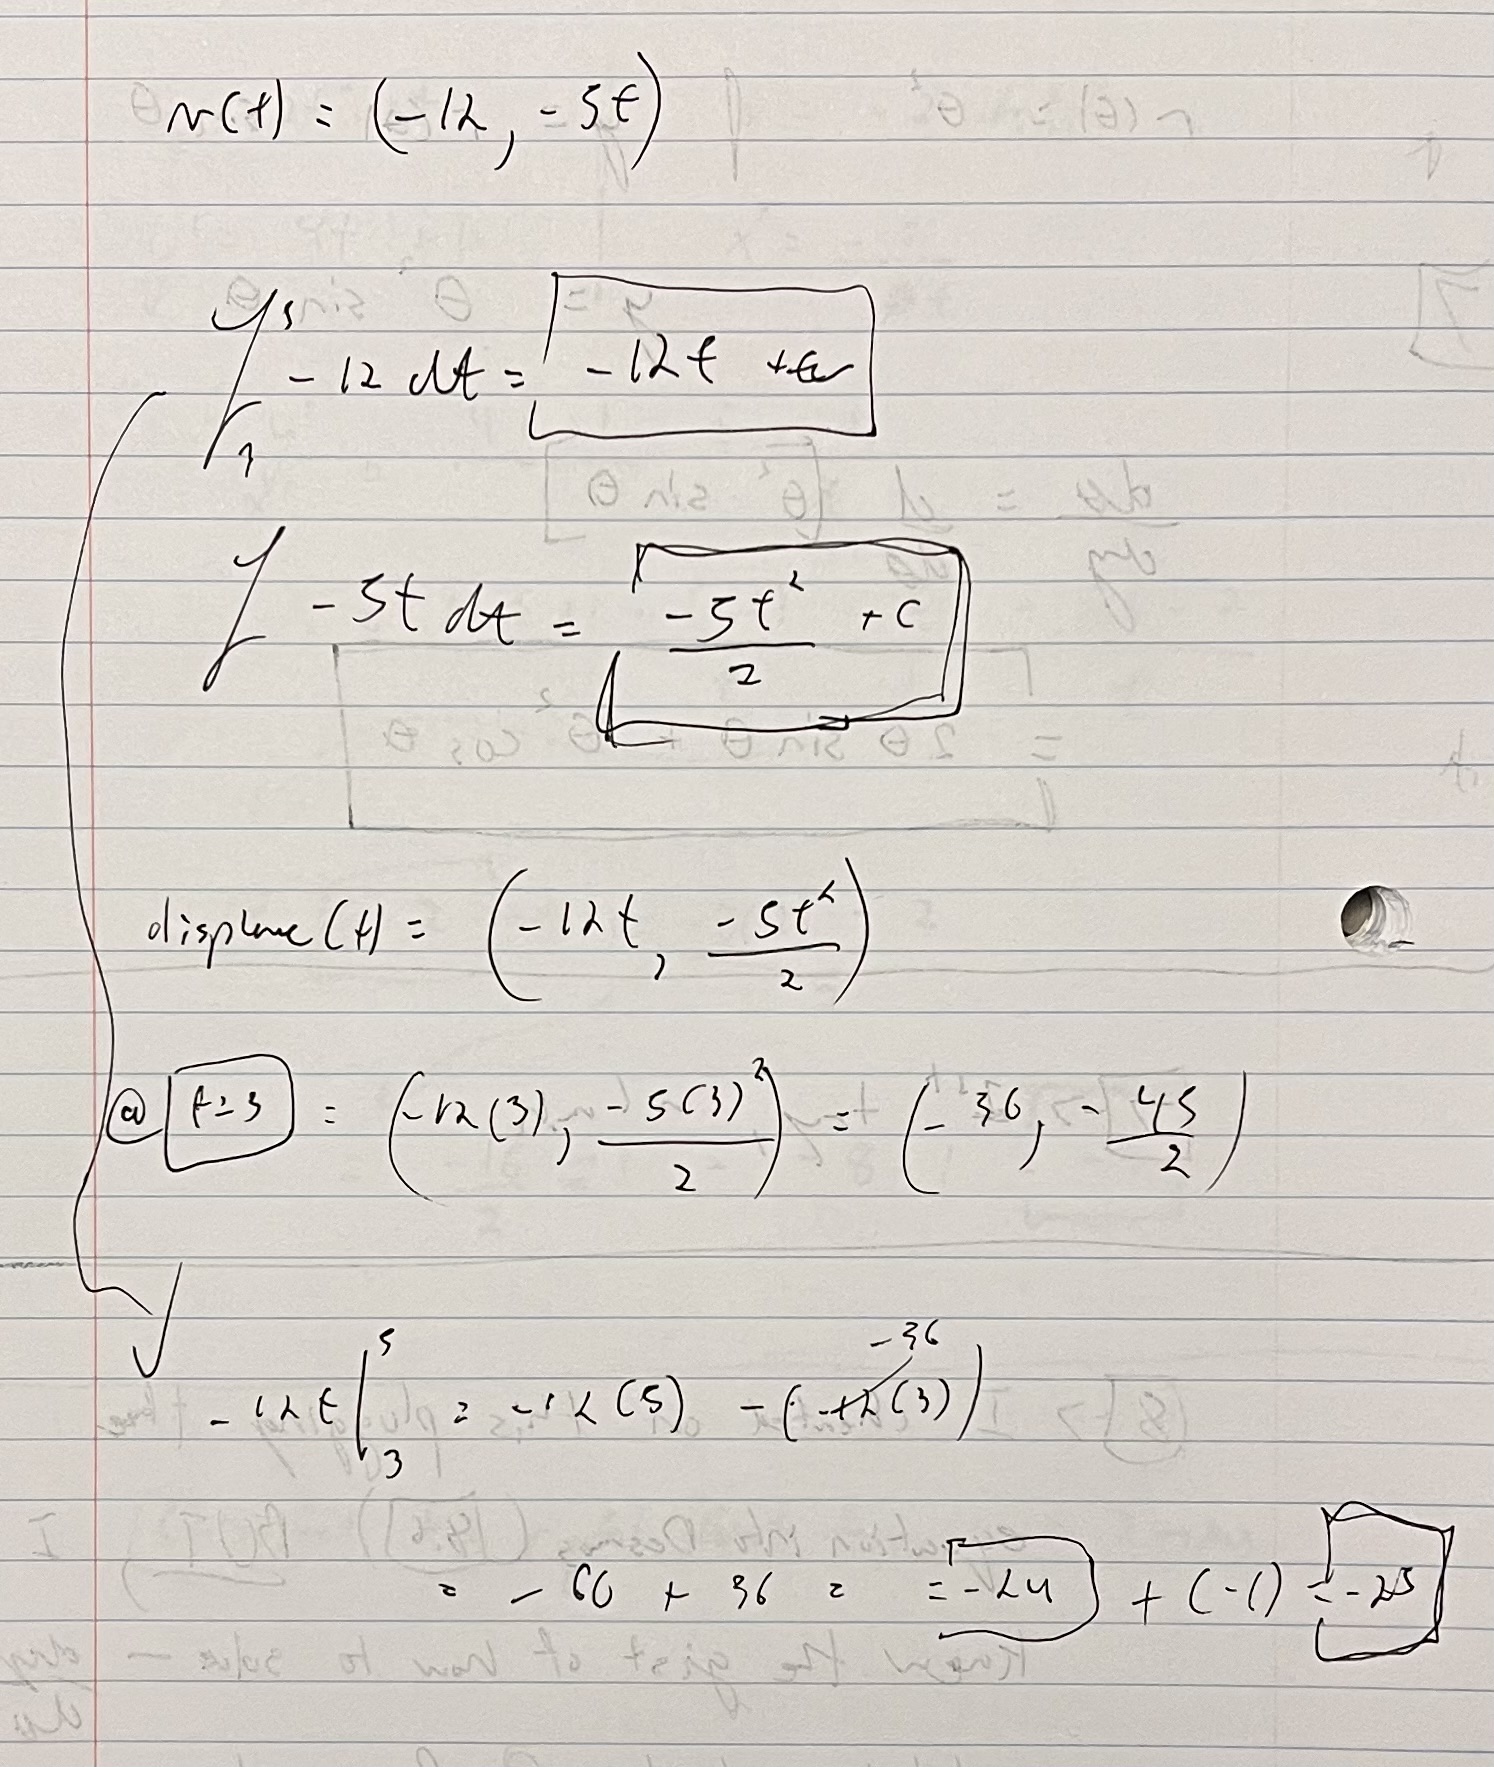 v(t) = (-12, -5t)
∫₃⁵ -12 dt = -12t
∫ -5t dt = -5t²/2 + C
(t) = (-12t, -5t²/2)
@ t=3 = (-12(3), -5(3)²/2) = (-36, -45/2)
-36
-12t |₃⁵ = -12(5) - (-12(3))
= -60 + 36 = = -24 + (-1) = -25